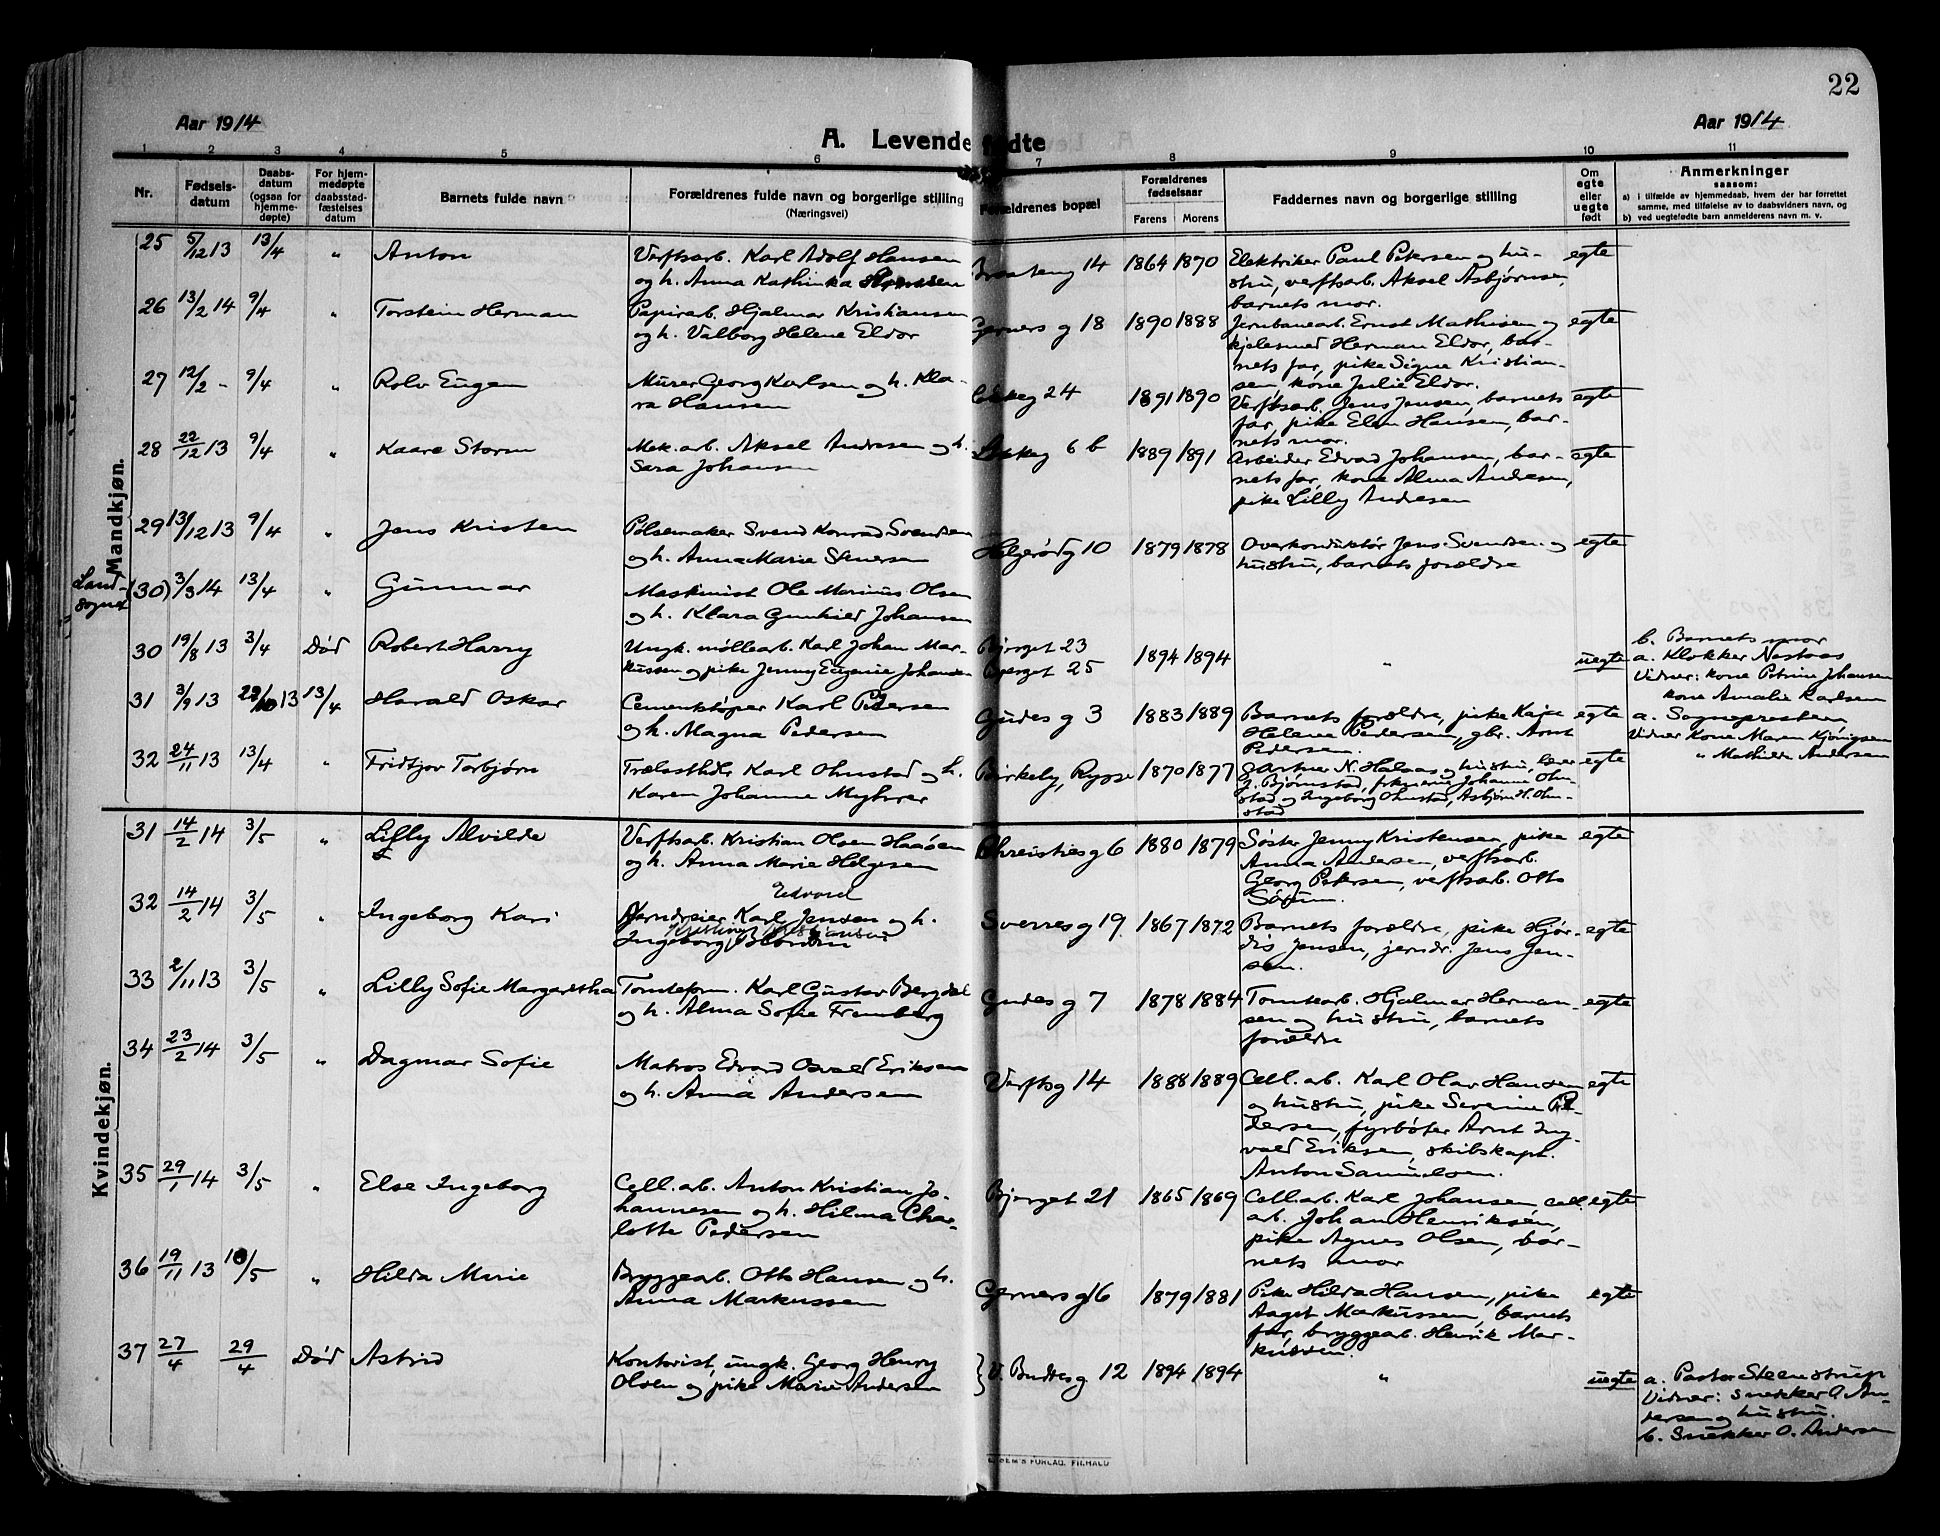 22
Aar 1914
Aar 1914
A. Levende fødte
1 2 3 4 5 6 7 8 9 10 11
Nr.
Fødsels-
datum
Daabs-
datum
(ogsaa for
hjemme-
døpte)
For hjem-
medøpte
daabsstad-
fæstelses
datum
Barnets fulde navn
Forældrenes fulde navn og borgerlige stilling
(Næringsvei)
Forældrenes bopæl
Forældrenes
fødselsaar
Farens Morens
Faddernes navn og borgerlige stilling
Om
egte
eller
uegte
født
Anmerkninger
saasom:
a) i tilfælde av hjemmedaab, hvem der har forrettet
samme, med tilføielse av to daabsvidners navn, og
b) ved uegtefødte barn anmelderens navn m. v.
Mandkjøn.
25 5/12 13 13/4 " Anton
Verftsarb. Karl Adolf Hansen
og h. Anna Kathinka Hansen
Braateng 14 1864 1870
Elektriker Paul Petersen og hu-
stru, verftsarb. Aksel Asbjørnsen,
barnets mor.
egte
26 13/2 14 9/4 " Torstein Herman
Papirarb. Hjalmar Kristiansen
og h. Valborg Helene Eldor
Gerners g 18 1890 1888
Jernbanearb. Ernst Mathisen og
kjelesmed Herman Eldor, bar-
nets far, pike Signe Kristian-
sen, kone Julie Eldor.
egte
27 12/2 - 9/4 " Rolv Eugen
Murer Georg Karlsen og h. Kla-
ra Hansen
24 1891 1890
Verftsarb. Jens Jensen, barnets
far, pike Elen Hansen, bar-
nets mor.
egte
28 22/12 13 9/4 " Kaare Storm
Mek. arb. Aksel Andresen og h.
Sara Johansen
Løkkeg 6 b 1889 1891
Arbeider Edvard Johansen, bar-
nets far, kone Alma Andresen,
pike Lilly Andresen
egte
29 13/12 13 9/4 " Jens Kristen
Pølsemaker Svend Konrad Svendsen
og h. Anna Marie Stensen
Helgerødg 10 1879 1878
Overkonduktør Jens Svendsen og
hustru, barnets forældre
egte
Land-
sognet
(30) 3/3 14 13/4 " Gunnar
Maskinist Ole Marius Olsen
og h. Klara Gunhild Johansen
30 19/8 13 3/4 Død Robert Harry
Ungk. møllearb. Karl Johan Mar-
kussen og pike Jenny Eugenie Johansen
Bjerget 23
Bjerget 25
1894 1894 " uegte
b. Barnets mor
a. Klokker Nestaas
Vidner: kone Petrine Johansen
kone Amalie Karlsen
31 3/9 13 22/10 13 13/4 Harald Oskar
Cementstøper Karl Pedersen
og h. Magna Pedersen
Gudes g 3 1883 1889
Barnets forældre, pike Kaja
Helene Pedersen, gbr. Arnt
Pedersen.
egte
a. Sognepresten
Vidner Kone Maren Kjønigsen
" Mathilde Andersen
32 24/11 13 13/4 " Fridtjov Torbjørn
Trælasthdlr Karl Ohnstad og h.
Karen Johanne Myhrer
Birkely, Rygge 1870 1877
Gartner N. Halaas og hustru,
J. Bjørnstad, Johanne Ohn-
stad og Ingeborg Ohnstad, Asbjørn H. Ohn-
stad
egte
Kvindekjøn.
31 14/2 14 3/5 " Lilly Alvilde
Verftsarb. Kristian Olsen Haasen
og h. Anna Marie Helgesen
Chreisties g 6 1880 1879
Søster Jenny Kristensen, pike
Anna Andersen, verftsarb.
Georg Petersen, verftsarb. Otto
Sørum.
egte
32 14/2 14 3/5 " Ingeborg Kari
Edvard
Jerndreier Karl Jensen og h.
Kristine Kristiansen
Ingeborg
Sverres g 19 1867 1872
Barnets forældre, pike Hjør-
dis Jensen, jerndr. Jens Jen-
sen.
egte
33 2/11 13 3/5 " Lilly Sofie Margaretha
Tomteform. Karl Gustav Bergdal
og h. Alma Sofie Fremberg
Gudes g 7 1878 1884
Tomtearb. Hjalmar Herman-
sen og hustru, barnets
forældre
egte
34 23/2 14 3/5 " Dagmar Sofie
Matros Edvard Osvald Eriksen
og h. Anna Andersen
Verftsg 14 1888 1889
Cell. arb. Karl Olav Hansen
og hustru, pike Severine Pe-
dersen, fyrbøter Arnt Ing-
vald Eriksen, skibskapt.
Anton Samuelsen.
egte
35 29/1 14 3/5 " Else Ingeborg
Cell. arb. Anton Kristian Jo-
hannesen og h. Hilma Char-
lotte Pedersen
Bjerget 21 1865 1869
Cell. arb. Karl Johansen, cell.
arb. Johan Henriksen,
pike Agnes Olsen, bar-
nets mor
egte
36 19/11 13 10/5 " Hilda Marie
Bryggearb. Otto Hansen og h.
Anna Markussen
Gerners g 16 1879 1881
Pike Hilda Hansen, pike
Aagot Markussen, barnets
far, bryggearb. Henrik Mar-
kussen.
egte
37 27/4 29/4 Død Astrid
Kontorist, ungk. Georg Henry
Olsen og pike Marie Andersen
} V. Budtes g 12 1894 1894 " uegte
a. Pastor Steenstrup
Vidner: snekker O. An-
dersen og hustru.
b. Snekker O. Andersen
FORLAG, FR.HALD